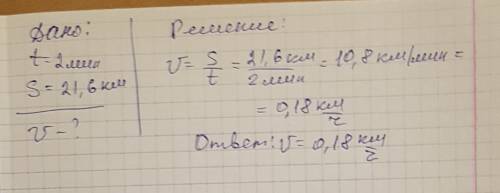 Дано:
t = 2 мин
S = 21,6 км
v - ?
Решение:
v = S/t = 21,6 км/2 мин = 10,8 км/мин =
= 0,18 км/ч
Ответ: v = 0,18 км/ч